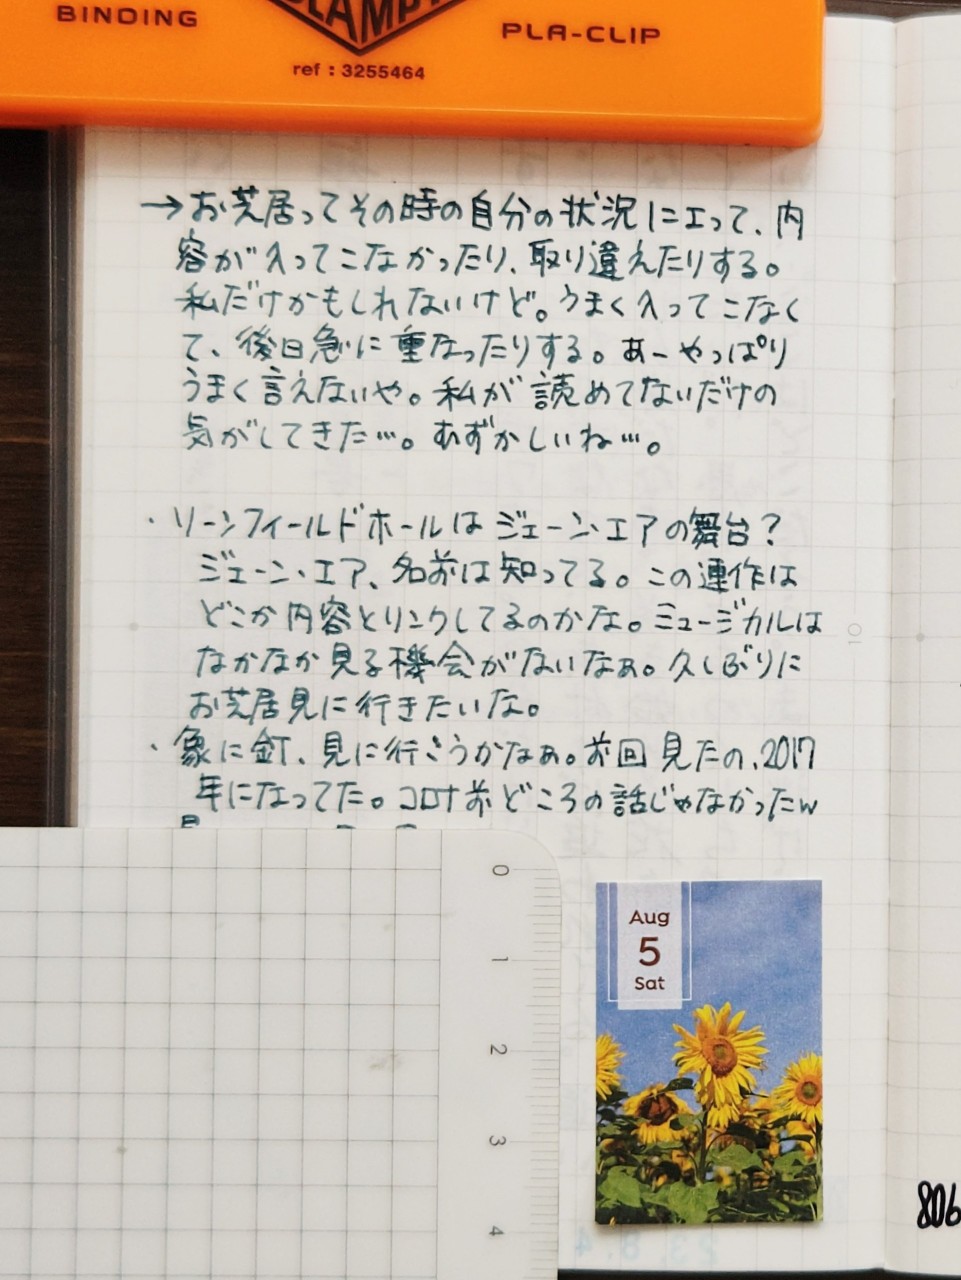 BINDING
PLA-CLIP
ref : 3255464
→お芝居ってその時の自分の状況によって、内
容が入ってこなかったり、取り違えたりする。
私だけかもしれないけど。うまく入ってこなく
て、後日急に重なったりする。あーやっぱり
うまく言えないや。私が読めてないだけの
気がしてきた…。むずかしいね…。
・ソーンフィールドホールはジェーン・エアの舞台?
ジェーン・エア、名前は知ってる。この連作は
どこか内容とリンクしてるのかな。ミュージカルは
なかなか見る機会がないなぁ。久しぶりに
お芝居見に行きたいな。
・象に釘、見に行こうかなぁ。前回見たの、2017
年になってた。コロナ前どころの話じゃなかったw
0
1
2
3
4
Aug
5
Sat
10
806
23.8.4